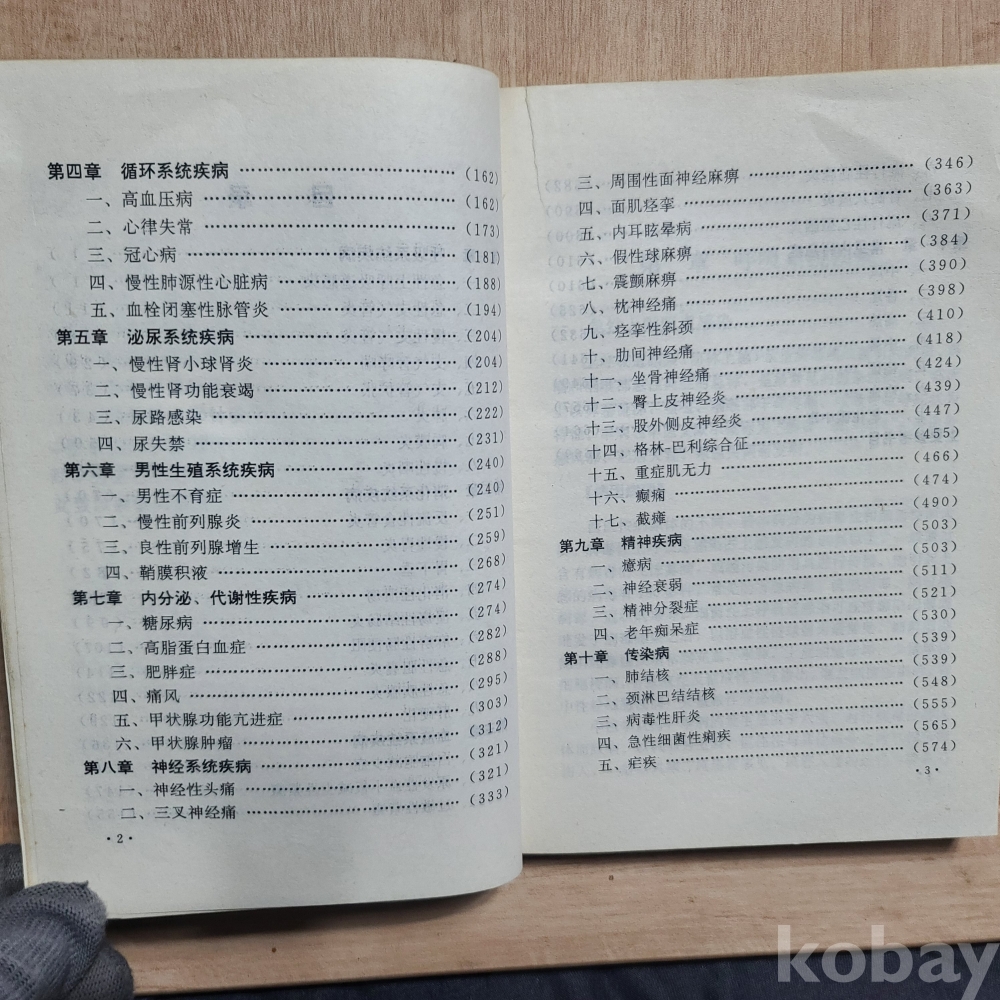 第四章 循环系统疾病 ⋯⋯⋯⋯⋯⋯⋯⋯ (162)
一、高血压病 ⋯⋯⋯⋯⋯⋯⋯⋯ (162)
二、心律失常 ⋯⋯⋯⋯⋯⋯⋯⋯ (173)
三、冠心病 ⋯⋯⋯⋯⋯⋯⋯⋯ (181)
四、慢性肺源性心脏病 ⋯⋯⋯⋯⋯⋯⋯⋯ (188)
五、血栓闭塞性脉管炎 ⋯⋯⋯⋯⋯⋯⋯⋯ (194)
第五章 泌尿系统疾病 ⋯⋯⋯⋯⋯⋯⋯⋯ (204)
一、慢性肾小球肾炎 ⋯⋯⋯⋯⋯⋯⋯⋯ (204)
二、慢性肾功能衰竭 ⋯⋯⋯⋯⋯⋯⋯⋯ (212)
三、尿路感染 ⋯⋯⋯⋯⋯⋯⋯⋯ (222)
四、尿失禁 ⋯⋯⋯⋯⋯⋯⋯⋯ (231)
第六章 男性生殖系统疾病 ⋯⋯⋯⋯⋯⋯⋯⋯ (240)
一、男性不育症 ⋯⋯⋯⋯⋯⋯⋯⋯ (240)
二、慢性前列腺炎 ⋯⋯⋯⋯⋯⋯⋯⋯ (251)
三、良性前列腺增生 ⋯⋯⋯⋯⋯⋯⋯⋯ (259)
四、鞘膜积液 ⋯⋯⋯⋯⋯⋯⋯⋯ (268)
第七章 内分泌、代谢性疾病 ⋯⋯⋯⋯⋯⋯⋯⋯ (274)
一、糖尿病 ⋯⋯⋯⋯⋯⋯⋯⋯ (274)
二、高脂蛋白血症 ⋯⋯⋯⋯⋯⋯⋯⋯ (282)
三、肥胖症 ⋯⋯⋯⋯⋯⋯⋯⋯ (288)
四、痛风 ⋯⋯⋯⋯⋯⋯⋯⋯ (295)
五、甲状腺功能亢进症 ⋯⋯⋯⋯⋯⋯⋯⋯ (303)
六、甲状腺肿瘤 ⋯⋯⋯⋯⋯⋯⋯⋯ (312)
第八章 神经系统疾病 ⋯⋯⋯⋯⋯⋯⋯⋯ (321)
一、神经性头痛 ⋯⋯⋯⋯⋯⋯⋯⋯ (321)
二、三叉神经痛 ⋯⋯⋯⋯⋯⋯⋯⋯ (333)
·2·
三、周围性面神经麻痹 ⋯⋯⋯⋯⋯⋯⋯⋯ (346)
四、面肌痉挛 ⋯⋯⋯⋯⋯⋯⋯⋯ (363)
五、内耳眩晕病 ⋯⋯⋯⋯⋯⋯⋯⋯ (371)
六、假性球麻痹 ⋯⋯⋯⋯⋯⋯⋯⋯ (384)
七、震颤麻痹 ⋯⋯⋯⋯⋯⋯⋯⋯ (390)
八、枕神经痛 ⋯⋯⋯⋯⋯⋯⋯⋯ (398)
九、痉挛性斜颈 ⋯⋯⋯⋯⋯⋯⋯⋯ (410)
十、肋间神经痛 ⋯⋯⋯⋯⋯⋯⋯⋯ (418)
十一、坐骨神经痛 ⋯⋯⋯⋯⋯⋯⋯⋯ (424)
十二、臀上皮神经炎 ⋯⋯⋯⋯⋯⋯⋯⋯ (439)
十三、股外侧皮神经炎 ⋯⋯⋯⋯⋯⋯⋯⋯ (447)
十四、格林-巴利综合征 ⋯⋯⋯⋯⋯⋯⋯⋯ (455)
十五、重症肌无力 ⋯⋯⋯⋯⋯⋯⋯⋯ (466)
十六、癫痫 ⋯⋯⋯⋯⋯⋯⋯⋯ (474)
十七、截瘫 ⋯⋯⋯⋯⋯⋯⋯⋯ (490)
第九章 精神疾病 ⋯⋯⋯⋯⋯⋯⋯⋯ (503)
一、癔病 ⋯⋯⋯⋯⋯⋯⋯⋯ (503)
二、神经衰弱 ⋯⋯⋯⋯⋯⋯⋯⋯ (511)
三、精神分裂症 ⋯⋯⋯⋯⋯⋯⋯⋯ (521)
四、老年痴呆症 ⋯⋯⋯⋯⋯⋯⋯⋯ (530)
第十章 传染病 ⋯⋯⋯⋯⋯⋯⋯⋯ (539)
一、肺结核 ⋯⋯⋯⋯⋯⋯⋯⋯ (539)
二、颈淋巴结结核 ⋯⋯⋯⋯⋯⋯⋯⋯ (548)
三、病毒性肝炎 ⋯⋯⋯⋯⋯⋯⋯⋯ (555)
四、急性细菌性痢疾 ⋯⋯⋯⋯⋯⋯⋯⋯ (565)
五、疟疾 ⋯⋯⋯⋯⋯⋯⋯⋯ (574)
·3·
kobay